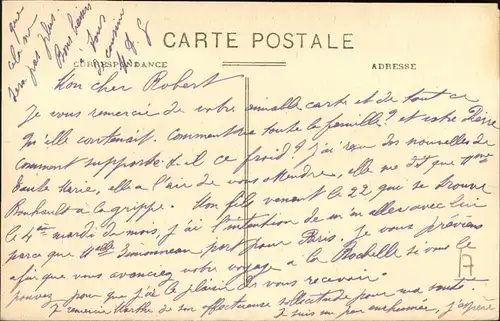 CARTE POSTALE
CORRESPONDANCE
ADRESSE
Mon cher Robert
Je vous remercie de votre aimable carte et de tout ce
qu'elle contenait. Comment va toute la famille? et votre Pierre
Comment supporte-t-il ce froid? J'ai reçu des nouvelles de
tante Marie, elle a l'air de vous attendre, elle me dit que Mme
a la grippe. Mon fils venant le 22 qui se trouve
le 4ème mardi du mois, j'ai l'intention de m'en aller avec lui
parce que Melle Simonneau part pour Paris. Je vous préviens
afin que vous avanciez votre voyage à la Rochelle si vous le
pouvez pour que j'ai le plaisir de vous recevoir.
Je remercie Marthe de son affectueuse sollicitude pour ma santé.
Je suis un peu enrhumée, j'espère
que
cela ne
sera pas plus.
Bons baisers
à tous
A